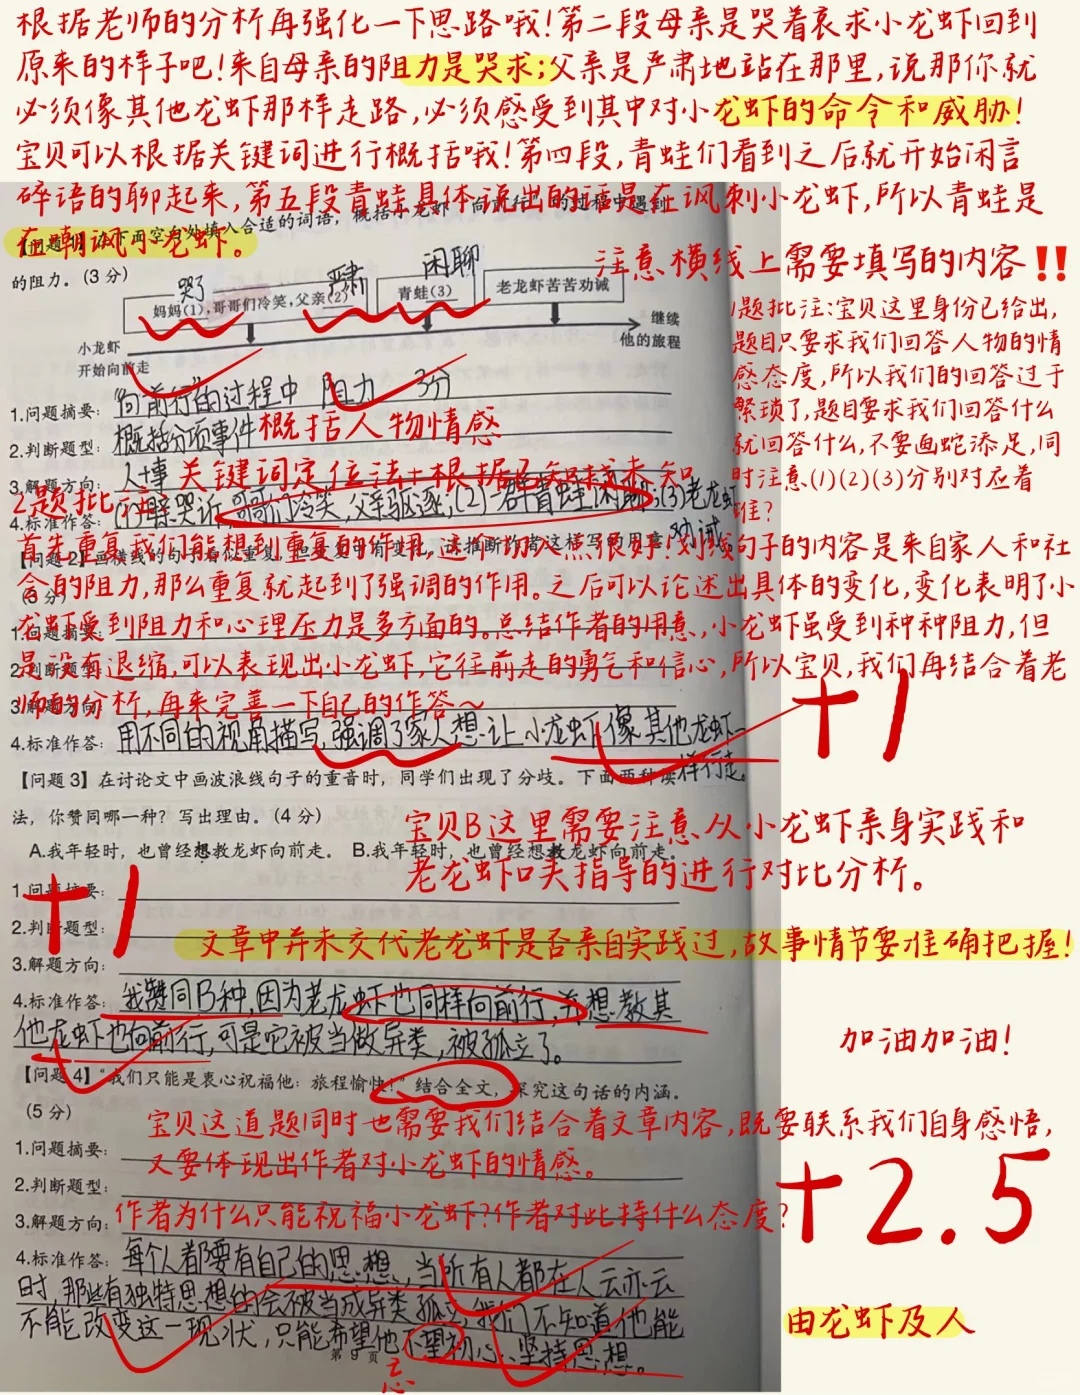 根据老师的分析再强化一下思路哦!第二段母亲是哭着哀求小龙虾回到
原来的样子吧!来自母亲的阻力是哭求;父亲是严肃地站在那里,说那你就
必须像其他龙虾那样走路,必须感受到其中对小龙虾的命令和威胁!
宝贝可以根据关键词进行概括哦!第四段,青蛙们看到之后就开始闲言
碎语的聊起来,第五段青蛙具体说出的话是在讽刺小龙虾,所以青蛙是
在嘲讽小龙虾。
【问题1】在下面空白处填入合适的词语,概括小龙虾“向前行”的过程中遇到
的阻力。(3分)
注意横线上需要填写的内容!!
哭了
严肃
闲聊
妈妈(1),哥哥们冷笑,父亲(2)
青蛙(3)
老龙虾苦苦劝诫
小龙虾
开始向前走
继续
他的旅程
1题批注:宝贝这里身份已给出,
题目只要求我们回答人物的情
感态度,所以我们的回答过于
繁琐了,题目要求我们回答什么
就回答什么,不要画蛇添足,同
时注意(1)(2)(3)分别对应着
谁?
1.问题摘要:“向前行”的过程中 阻力 3分
2.判断题型:概括分项事件 概括人物情感
3.解题方向:人+事 关键词定位法+根据已知找未知
4.标准作答:(1)哭诉,哥哥们冷笑,父亲驱逐;(2)一群青蛙闲聊;(3)老龙虾
劝诫
2题批注:
首先重复我们能想到重复的作用,这个切入点很好,划线句子的内容是来自家人和社
会的阻力,那么重复就起到了强调的作用。之后可以论述出具体的变化,变化表明了小
龙虾受到阻力和心理压力是多方面的。总结作者的用意,小龙虾虽受到种种阻力,但
是没有退缩,可以表现出小龙虾,它往前走的勇气和信心,所以宝贝,我们再结合着老
师的分析,再来完善一下自己的作答~
【问题2】画横线的句子看似重复,但重复中有变化,请推断作者这样写的用意。
(3分)
1.问题摘要:
2.判断题型:
3.解题方向:
+1
4.标准作答:用不同的视角描写,强调了家人想让小龙虾像其他龙虾一
样行走。
【问题3】在讨论文中画波浪线句子的重音时,同学们出现了分歧。下面两种读
法,你赞同哪一种?写出理由。(4分)
A.我年轻时,也曾经想教龙虾向前走。 B.我年轻时,也曾经想教龙虾向前走。
宝贝B这里需要注意从小龙虾亲身实践和
老龙虾口头指导的进行对比分析。
+1
1.问题摘要:
2.判断题型:
文章中并未交代老龙虾是否亲自实践过,故事情节要准确把握!
3.解题方向:
4.标准作答:我赞同B种,因为老龙虾也同样向前行,并想教其
他龙虾也向前行,可是它被当做异类,被孤立了。
加油加油!
【问题4】“我们只能是衷心祝福他:旅程愉快!”结合全文,探究这句话的内涵。
(5分)
宝贝这道题同时也需要我们结合着文章内容,既要联系我们自身感悟,
又要体现出作者对小龙虾的情感。
1.问题摘要:
2.判断题型:
+2.5
3.解题方向:作者为什么只能祝福小龙虾?作者对此持什么态度?
4.标准作答:每个人都要有自己的思想,当所有人都在人云亦云
时,那些有独特思想的会被当成异类孤立,我们不知道他能
不能改变这一现状,只能希望他不望初心,坚持思想。
忘
由龙虾及人
第 9 页